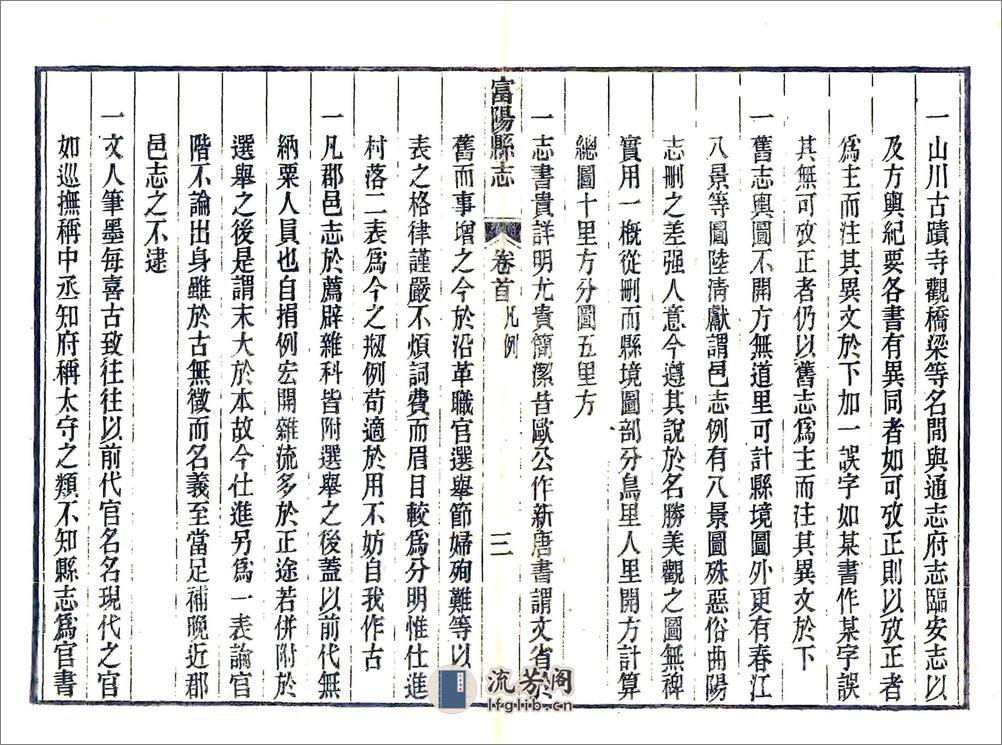 一山川古蹟寺觀橋梁等名間與通志府志臨安志以
及方輿紀要各書有異同者如可攷正則以攷正者
爲主而注其異文於下加一誤字如某書作某字誤
其無可攷正者仍以舊志爲主而注其異文於下
一舊志輿圖不開方無道里可計縣境圖外更有春江
八景等圖陸清獻謂邑志例有八景圖殊惡俗曲陽
志刪之差强人意今遵其說於名勝美觀之圖無裨
實用一概從刪而縣境圖剖分鳥里人里開方計算
總圖十里方分圖五里方
一志書貴詳明尤貴簡潔昔歐公作新唐書謂文省於
富陽縣志 卷首 凡例 三
舊而事增之今於沿革職官選舉節婦殉難等以
表之格律謹嚴不煩詞費而眉目較爲分明惟仕進
村落二表爲今之剏例苟適於用不妨自我作古
一凡郡邑志於薦辟雜科皆附選舉之後蓋以前代無
納粟人員也自捐例宏開雜流多於正途若併附於
選舉之後是謂末大於本故今仕進另爲一表論官
階不論出身雖於古無徵而名義至當足補晚近郡
邑志之不逮
一文人筆墨每喜古致往往以前代官名名現代之官
如巡撫稱中丞知府稱太守之類不知縣志爲官書
流芳阁
lfglib.cn